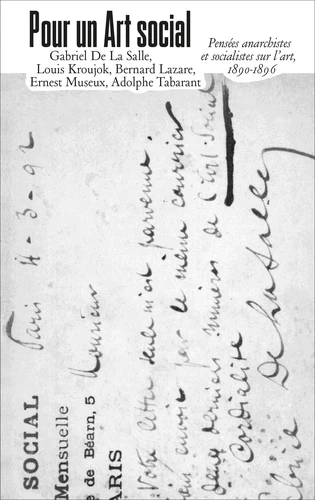 Pour un Art social
Gabriel De La Salle,
Louis Kroujok, Bernard Lazare,
Ernest Museux, Adolphe Tabarant
Pensées anarchistes
et socialistes sur l'art,
1890-1896
SOCIAL
Mensuelle
e de Béarn, 5
ARIS
Paris 4-3-92
Monsieur
Votre lettre seule m'est parvenue.
par le même courrier
deux derniers numéros de l'Art Social
Cordialité
De La Salle